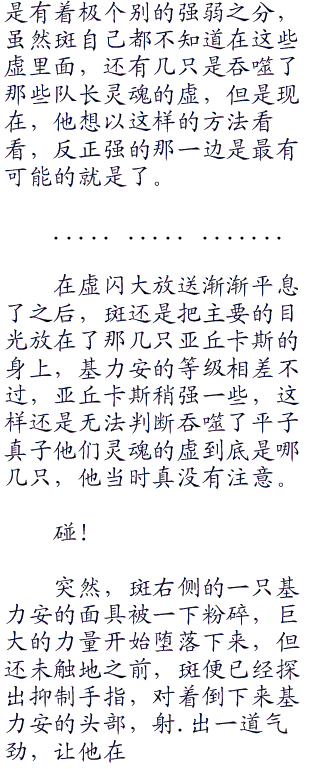 是有着极个别的强弱之分，
虽然斑自己都不知道在这些
虚里面，还有几只是吞噬了
那些队长灵魂的虚，但是现
在，他想以这样的方法看
看，反正强的那一边是最有
可能的就是了。
..... ..... .......
在虚闪大放送渐渐平息
了之后，斑还是把主要的目
光放在了那几只亚丘卡斯的
身上，基力安的等级相差不
过，亚丘卡斯稍强一些，这
样还是无法判断吞噬了平子
真子他们灵魂的虚到底是哪
几只，他当时真没有注意。
碰！
突然，斑右侧的一只基
力安的面具被一下粉碎，巨
大的力量开始堕落下来，但
还未触地之前，斑便已经探
出抑制手指，对着倒下来基
力安的头部，射.出一道气
劲，让他在